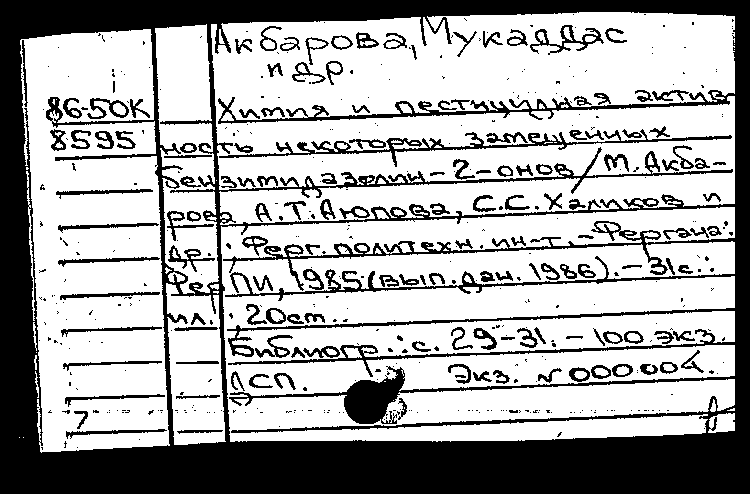 Акбарова, Мукаддас
и др.
86-50К Химия и пестицидная актив-
8595 ность некоторых замещенных
бензимидазолин-2-онов / М. Акба-
рова, А.Т. Аюпова, С.С. Халиков и
др.; Ферг. политехн. ин-т. - Фергана:
ФерПИ, 1985 (вып. дан. 1986). - 31 с.:
ил.; 20 см..
Библиогр.: с. 29-31. - 100 экз.
ДСП. Экз. № 000004.
7